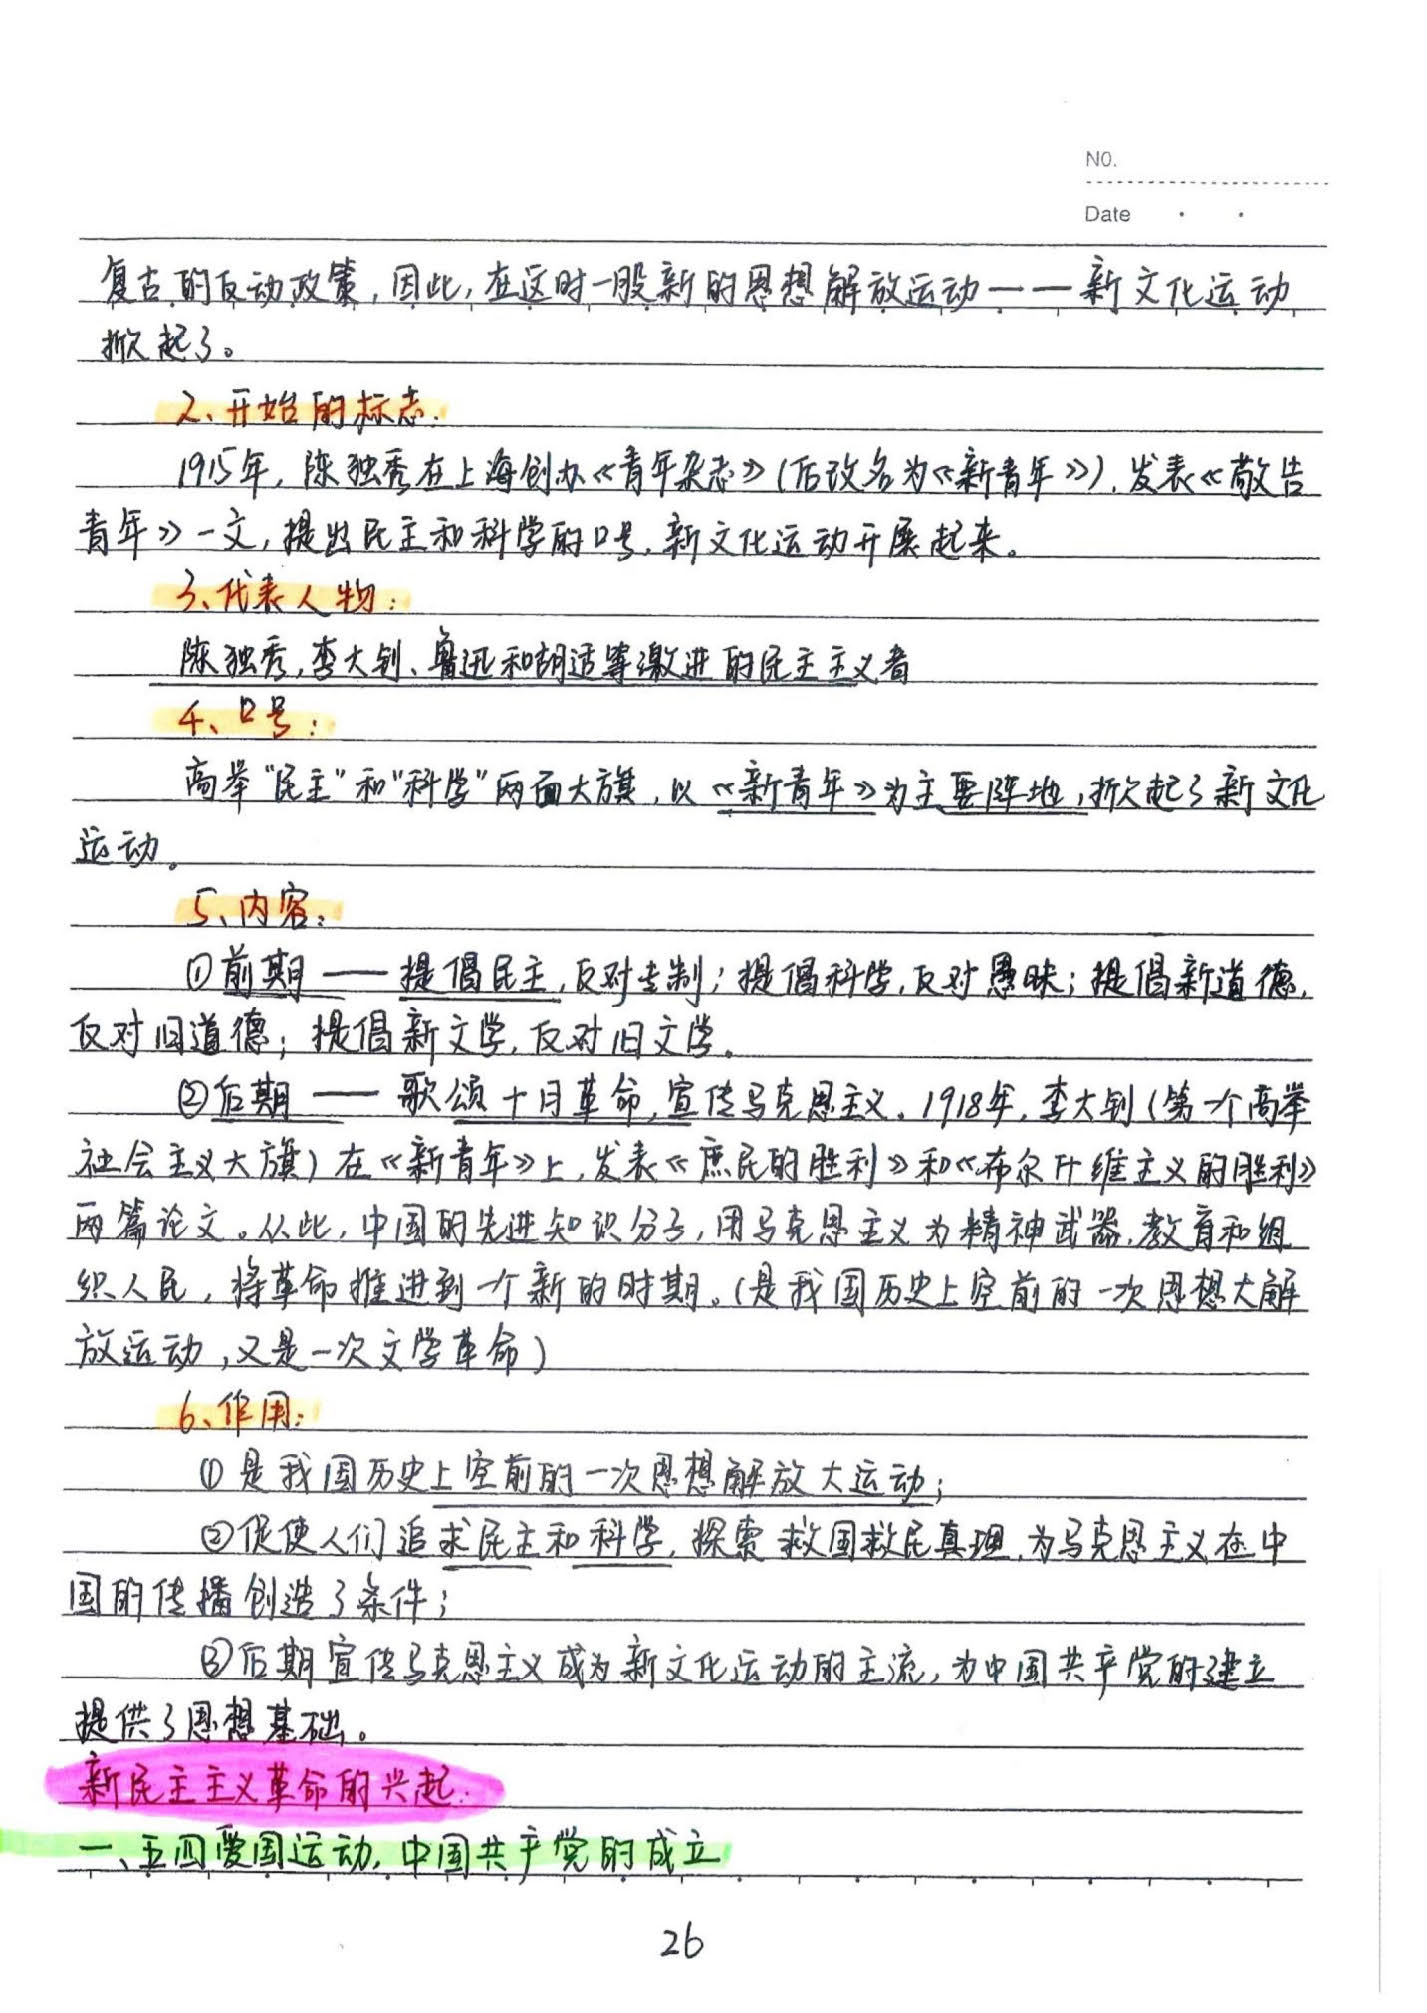 NO.
Date
复古的反动政策,因此,在这时一股新的思想解放运动——新文化运动
掀起了。
2、开始的标志:
1915年,陈独秀在上海创办《青年杂志》(后改名为《新青年》),发表《敬告
青年》一文,提出民主和科学的口号,新文化运动开展起来。
3、代表人物:
陈独秀,李大钊、鲁迅和胡适等激进的民主主义者
4、口号:
高举"民主"和"科学"两面大旗,以《新青年》为主要阵地,掀起了新文化
运动。
5、内容:
①前期——提倡民主,反对专制;提倡科学,反对愚昧;提倡新道德,
反对旧道德;提倡新文学,反对旧文学。
②后期——歌颂十月革命,宣传马克思主义。1918年,李大钊(第一个高举
社会主义大旗)在《新青年》上,发表《庶民的胜利》和《布尔什维主义的胜利》
两篇论文。从此,中国的先进知识分子,用马克思主义为精神武器,教育和组
织人民,将革命推进到一个新的时期。(是我国历史上空前的一次思想大解
放运动,又是一次文学革命)
6、作用:
①是我国历史上空前的一次思想解放大运动;
②促使人们追求民主和科学,探索救国救民真理,为马克思主义在中
国的传播创造了条件;
③后期宣传马克思主义成为新文化运动的主流,为中国共产党的建立
提供了思想基础。
新民主主义革命的兴起:
一、五四爱国运动,中国共产党的成立
26